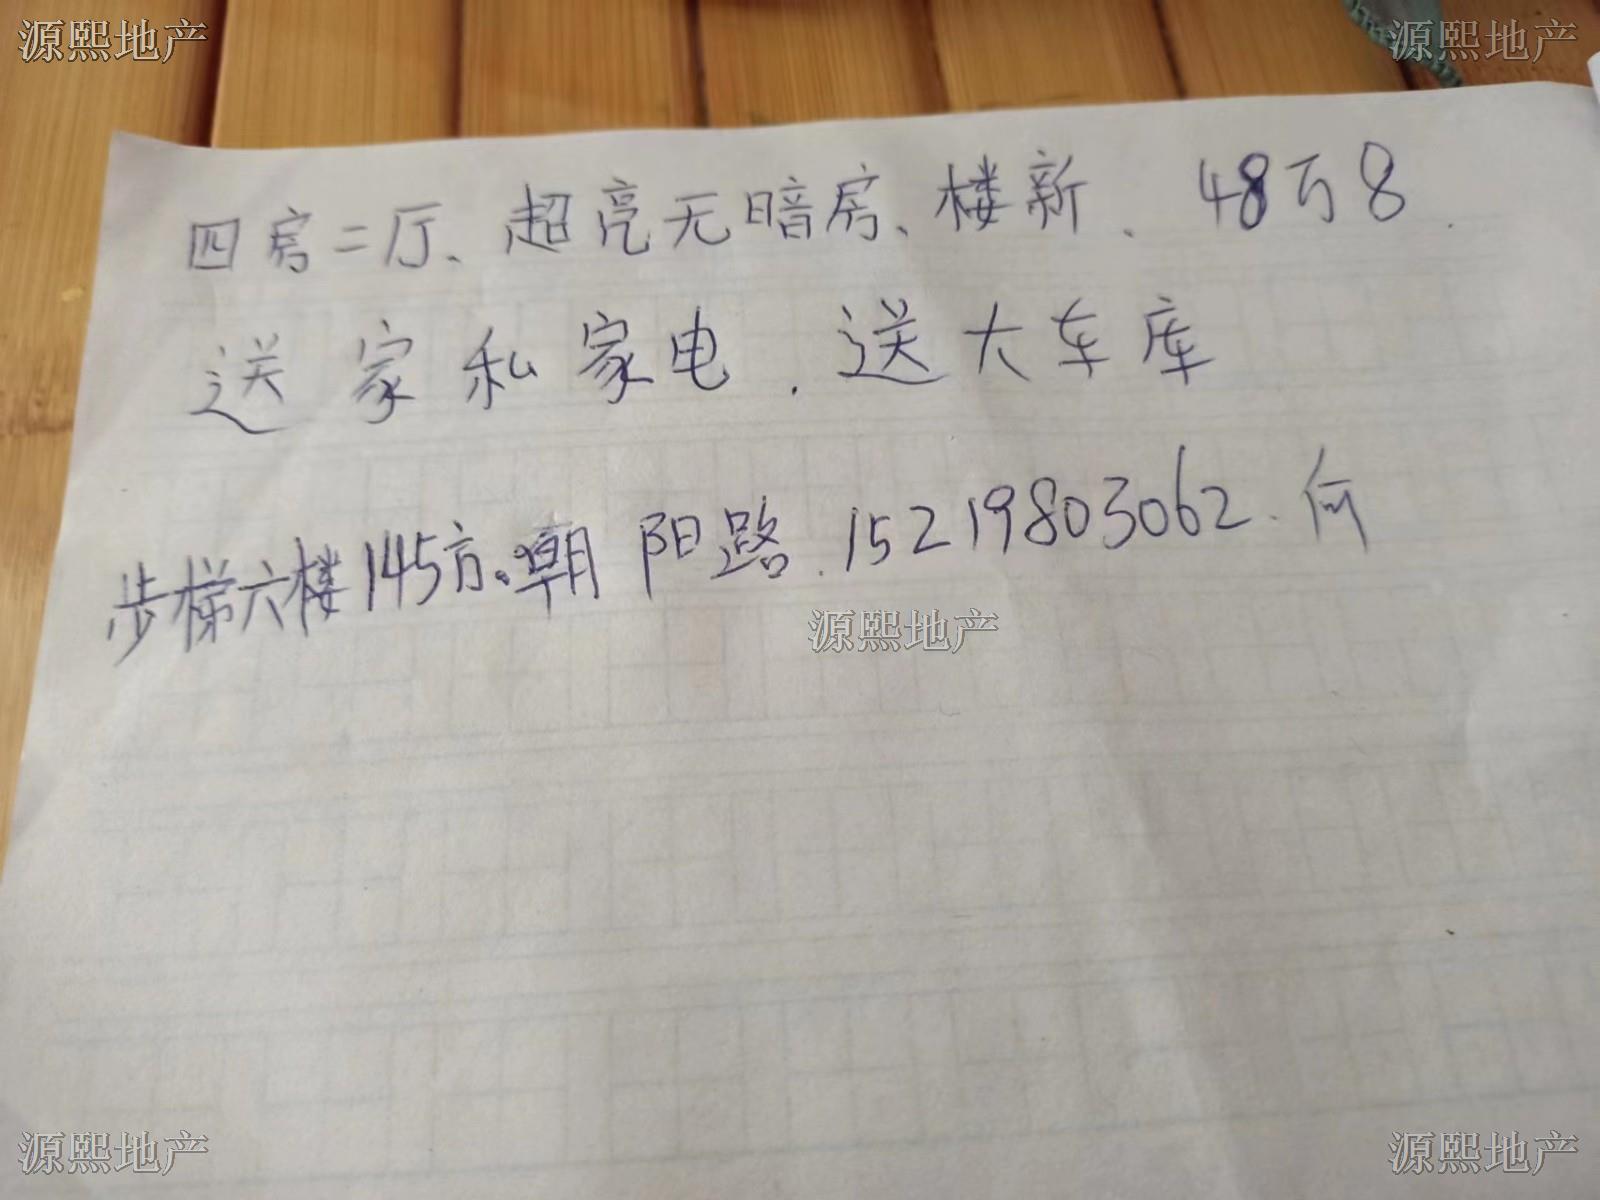 源熙地产 源熙地产
四房二厅、超亮无暗房、楼新、48万8.
送家私家电.送大车库
步梯六楼145方。朝阳路.15219803062.何
源熙地产
源熙地产 源熙地产